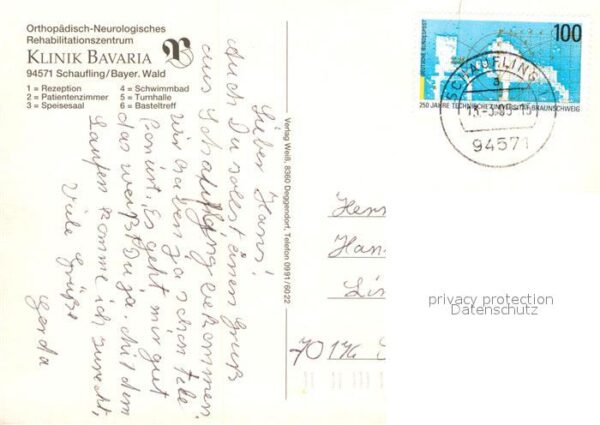 Orthopädisch-Neurologisches
Rehabilitationszentrum
KLINIK BAVARIA
94571 Schaufling/Bayer. Wald
1 = Rezeption
2 = Patientenzimmer
3 = Speisesaal
4 = Schwimmbad
5 = Turnhalle
6 = Basteltreff
Lieber Hans!
Auch Du sollst einen Gruß
aus Schaufling bekommen
wir haben ja schon tele-
foniert. Es geht mir gut
das weißt Du ja. Mit dem
Laufen komme ich zurecht,
Viele Grüße
Gerda
Verlag Weiß, 8360 Deggendorf, Telefon 0991/6022
DEUTSCHE BUNDESPOST
100
250 JAHRE TECHNISCHE UNIVERSITÄT BRAUNSCHWEIG
SCHAUFLING
a
94571
Herr
Han
70176
privacy protection
Datenschutz